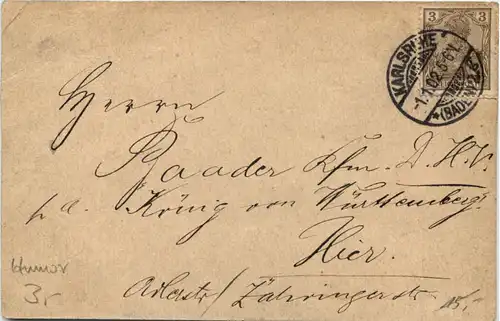 3 3
KARLSRUHE
1.1.02.5-6N.
*(BADEN)2.*
Herrn
Baader Kfm. D.H.V.
p. a. König von Württemberg
Hier.
Adlerstr/Zähringerstr.
Humor
3,-
15,-